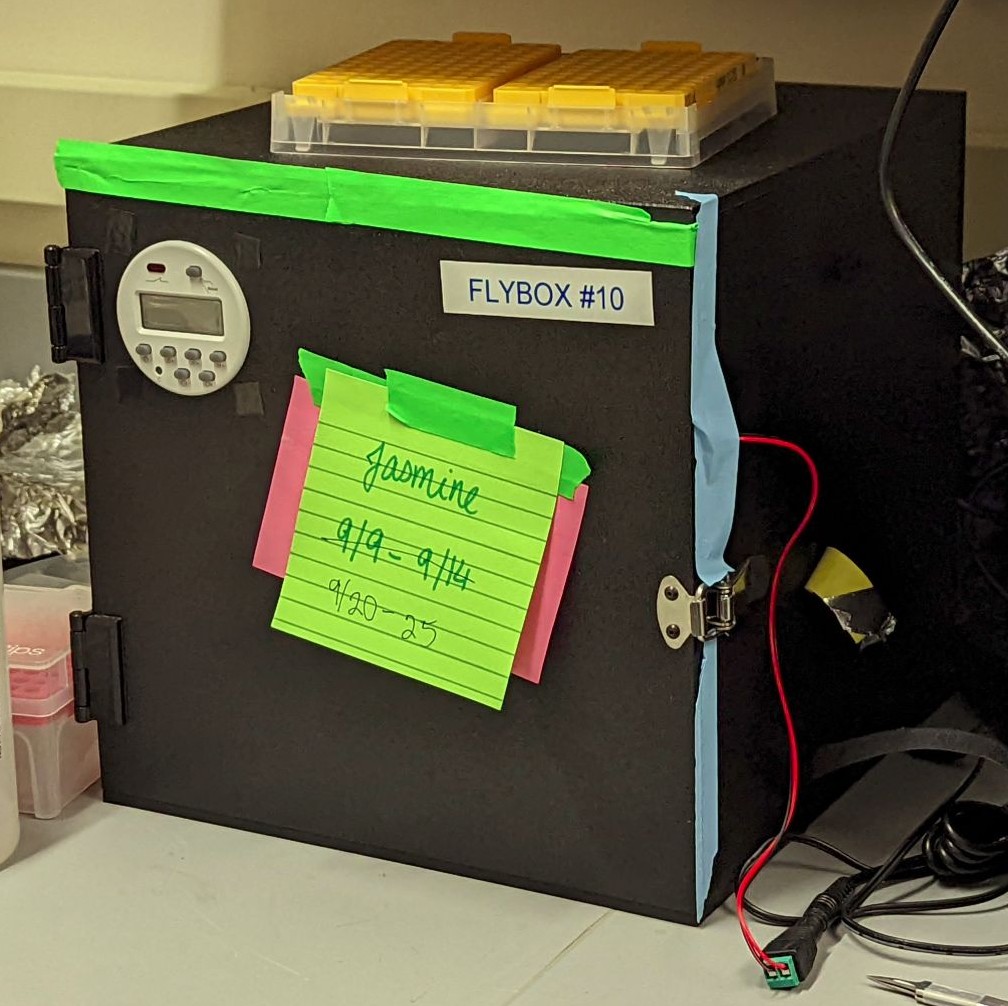 FLYBOX #10
Jasmine
9/9 - 9/14
9/20 - 25
tips